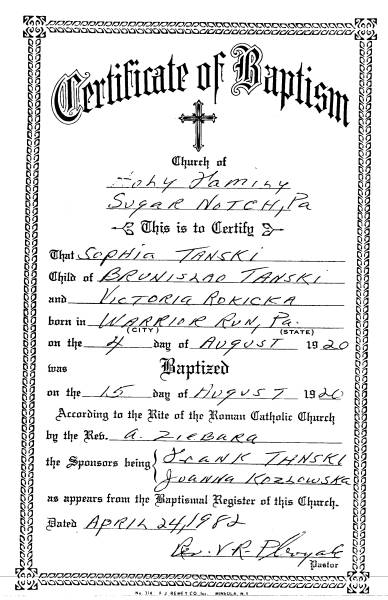 Certificate of Baptism
Church of
Holy Family
Sugar Notch, Pa
This is to Certify
That Sophia Tanski
Child of Brunislao Tanski
and Victoria Rokicka
born in Warrior Run, Pa.
(CITY) (STATE)
on the 4 day of August 1920
was Baptized
on the 15 day of August 1920
According to the Rite of the Roman Catholic Church
by the Rev. A. Ziebara
the Sponsors being Frank Tanski
Joanna Kozlowska
as appears from the Baptismal Register of this Church.
Dated April 24/1982
Rev. V R
Pastor
No. 316 F J REMEY CO., Inc. MINEOLA, N.Y.